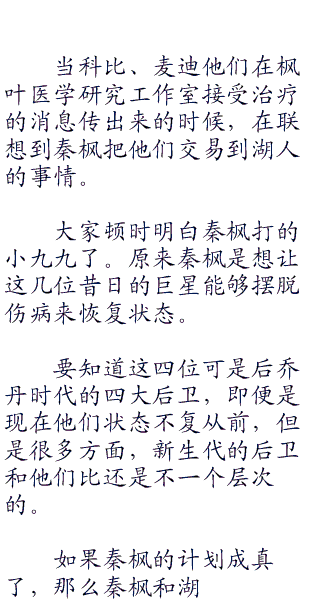 当科比、麦迪他们在枫
叶医学研究工作室接受治疗
的消息传出来的时候，在联
想到秦枫把他们交易到湖人
的事情。
大家顿时明白秦枫打的
小九九了。原来秦枫是想让
这几位昔日的巨星能够摆脱
伤病来恢复状态。
要知道这四位可是后乔
丹时代的四大后卫，即便是
现在他们状态不复从前，但
是很多方面，新生代的后卫
和他们比还是不一个层次
的。
如果秦枫的计划成真
了，那么秦枫和湖